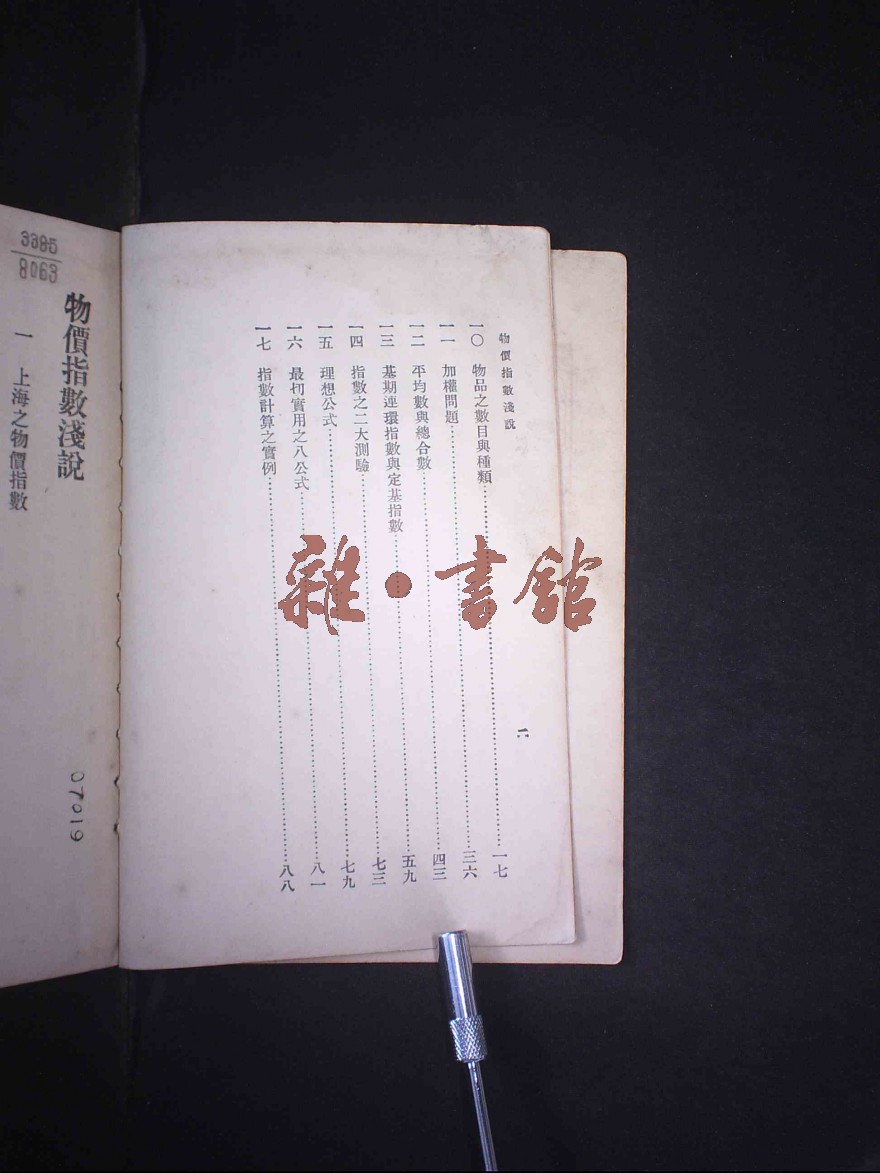 物價指數淺說
二
一〇 物品之數目與種類……一七
一一 加權問題……三六
一二 平均數與總合數……四三
一三 基期連環指數與定基指數……五九
一四 指數之二大測驗……七三
一五 理想公式……七九
一六 最切實用之八公式……八一
一七 指數計算之實例……八八
雜·書館
3385
8063
物價指數淺說
一 上海之物價指數
07019